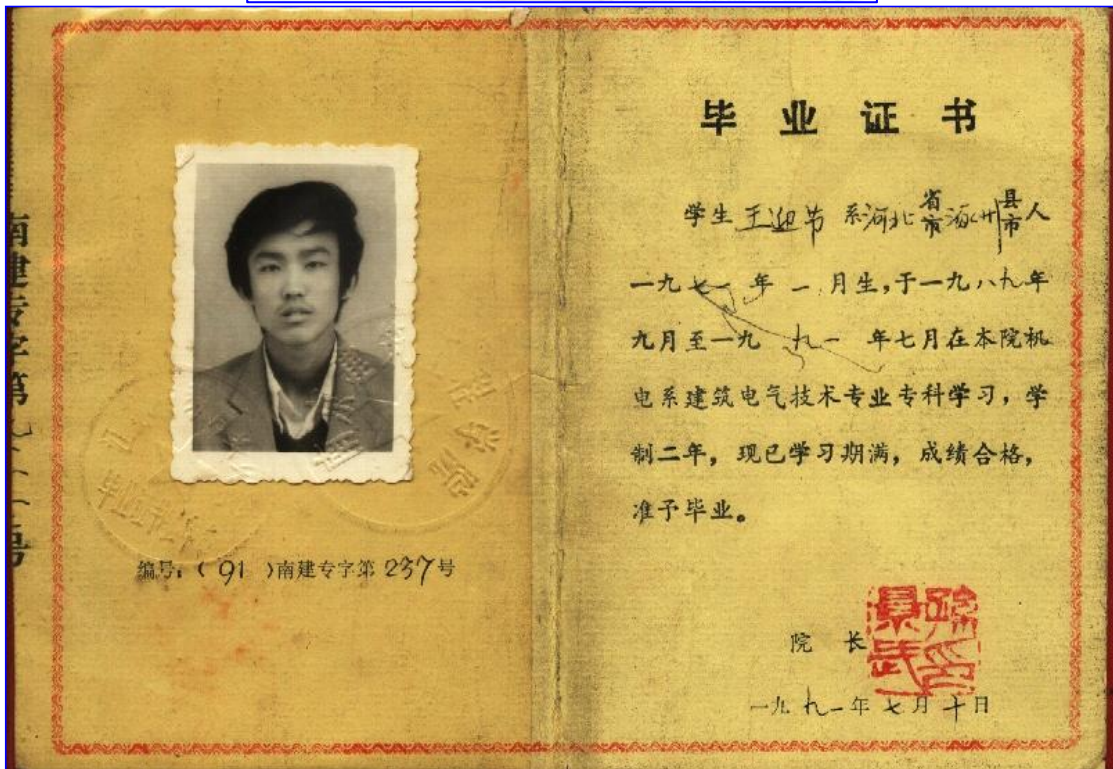 南建专字第
号
编号:(91)南建专字第237号
毕业证书
学生王迎节系河北省市涿州县市人
一九七一年一月生,于一九八九年
九月至一九九一年七月在本院机
电系建筑电气技术专业专科学习,学
制二年,现已学习期满,成绩合格,
准予毕业。
院长
一九九一年七月十日